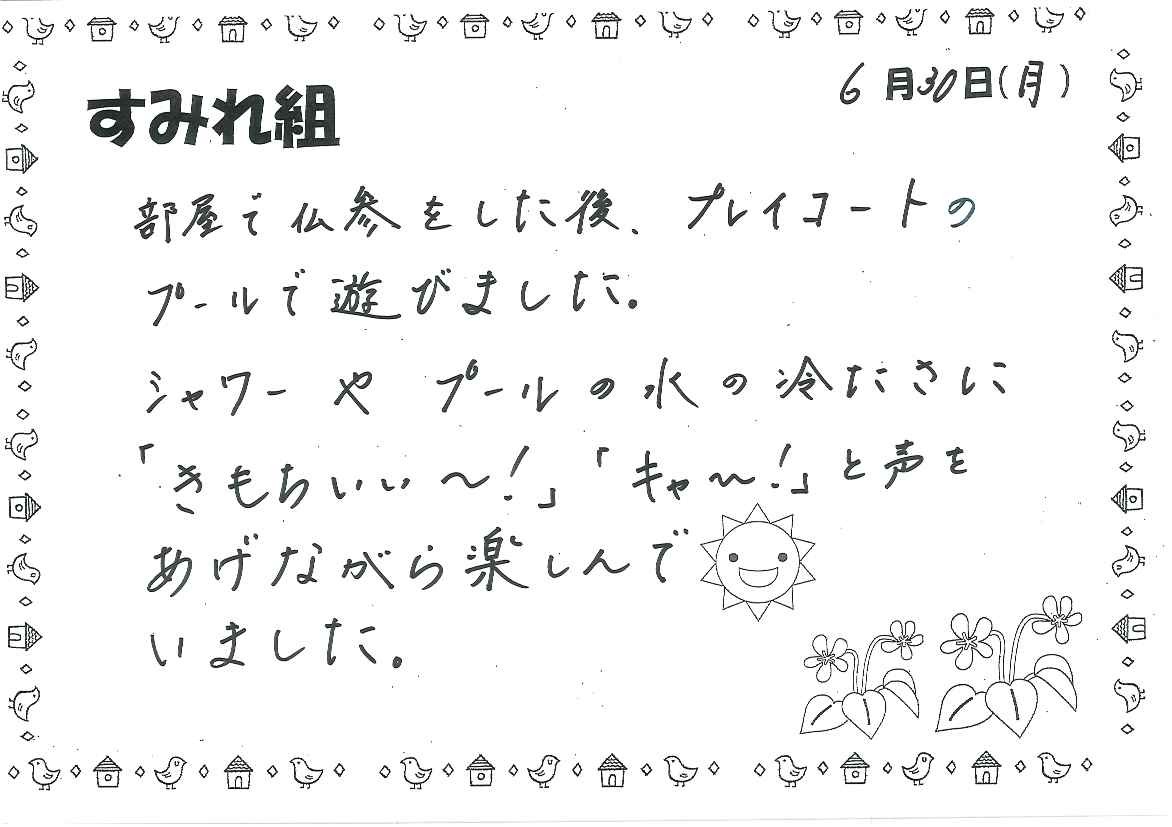 6月30日(月)
すみれ組
部屋で仏参をした後、プレイコートの
プールで遊びました。
シャワーや プールの水の冷たさに
「きもちいい〜!」「キャ〜!」と声を
あげながら楽しんで
いました。